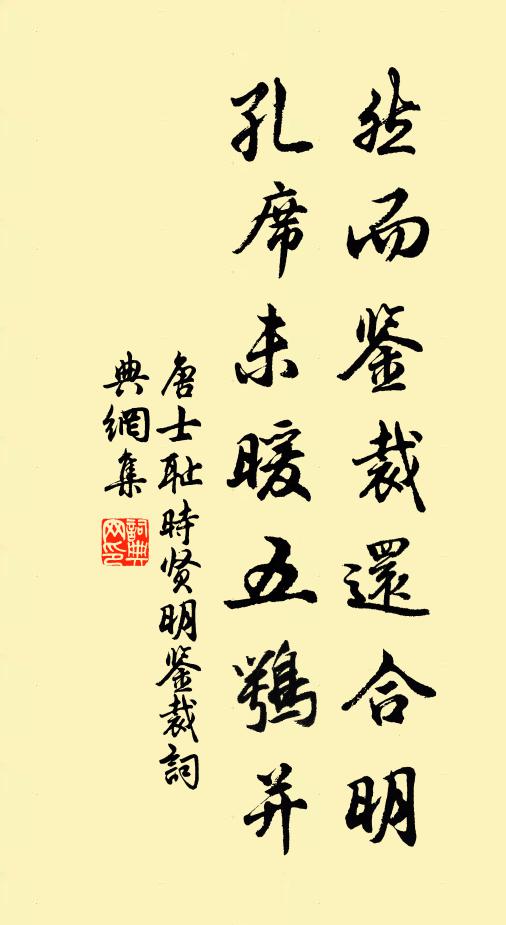 然而鉴裁還合明
孔席未暖五鶚并
唐士耻時贤明鉴裁詞
典網集
詞典網印